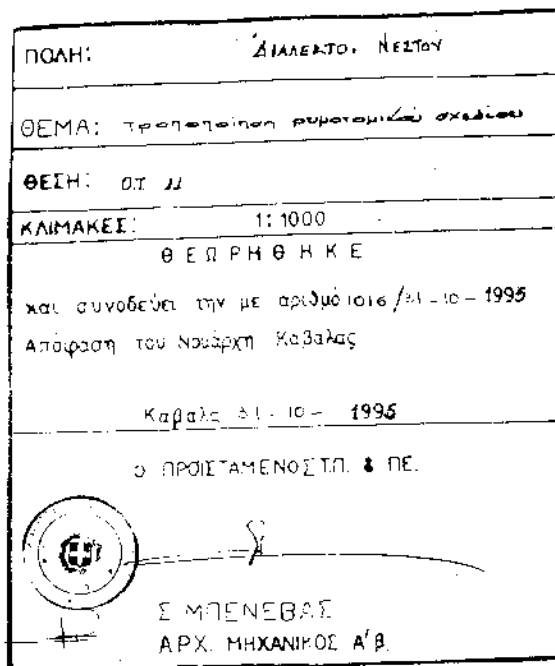 ΠΟΛΗ: ΔΙΑΛΕΚΤΟ. ΝΕΣΤΟΥ
ΘΕΜΑ: τροποποίηση ρυμοτομικού σχεδίου
ΘΕΣΗ: Ο.Τ. 11
ΚΛΙΜΑΚΕΣ: 1:1000
ΘΕΩΡΗΘΗΚΕ
και συνοδεύει την με αριθμό 1016/31-10-1995
Απόφαση του Νομάρχη Καβάλας
Καβάλα 31-10-1995
Ο ΠΡΟΙΣΤΑΜΕΝΟΣ Τ.Π. & ΠΕ.
Σ ΜΠΕΝΕΒΑΣ
ΑΡΧ. ΜΗΧΑΝΙΚΟΣ Α'β.